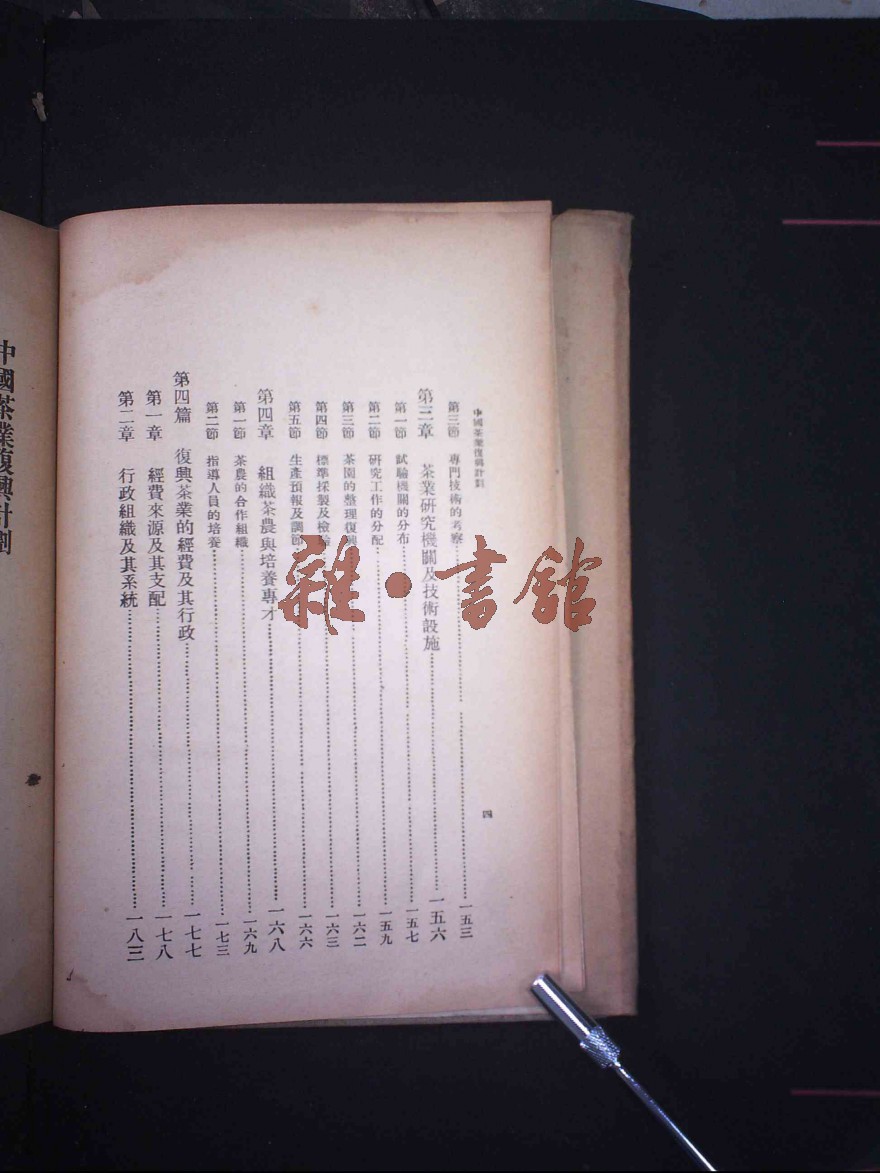 中國茶業復興計劃
四
第三節 專門技術的考察 一五三
第三章 茶業研究機關及技術設施 一五六
第一節 試驗機關的分布 一五七
第二節 研究工作的分配 一五九
第三節 茶園的整理復興 一六二
第四節 標準採製及檢驗 一六三
第五節 生產預報及調節 一六六
第四章 組織茶農與培養專才 一六八
第一節 茶農的合作組織 一六九
第二節 指導人員的培養 一七三
第四篇 復興茶業的經費及其行政 一七七
第一章 經費來源及其支配 一七八
第二章 行政組織及其系統 一八三
中國茶業復興計劃
雜·書館